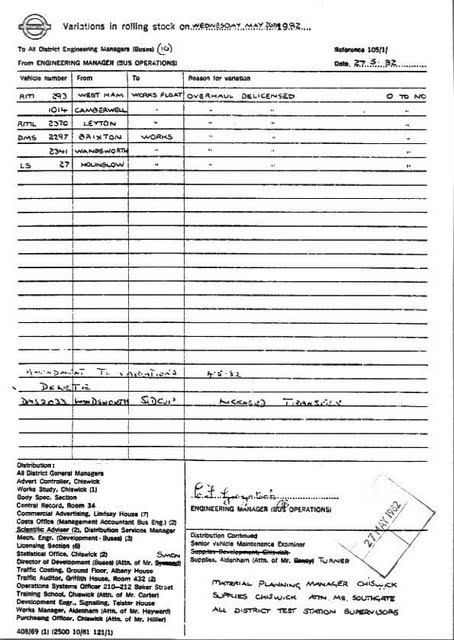 Variations in rolling stock on WEDNESDAY MAY 1982
To All District Engineering Managers (Buses) (10) Reference 105/1/
From ENGINEERING MANAGER (BUS OPERATIONS) Date 27.5.82
Vehicle number From To Reason for variation
RM 293 WEST HAM WORKS FLOAT OVERHAUL DELICENSED O TO NO
1014 CAMBERWELL " " " "
RML 2370 LEYTON " " " "
DMS 2297 BRIXTON WORKS " " "
2341 WANDSWORTH " " " "
LS 27 HOUNSLOW " " " "
AMENDMENT TO VARIATIONS 4-5-82
DELETE
DMS2033 WANDSWORTH SIDCUP LICENSED TRANSFER
Distribution:
All District General Managers
Advert Controller, Chiswick
Works Study, Chiswick (1)
Body Spec. Section
Central Record, Room 34
Commercial Advertising, Lindsay House (7)
Costs Office (Management Accountant Bus Eng.) (2)
Scientific Adviser (2), Distribution Services Manager
Mech. Engr. (Development - Buses) (3)
Licensing Section (6)
Statistical Office, Chiswick (2) SIMON
Director of Development (Buses) (Attn. of Mr.
Traffic Costing, Ground Floor, Albany House
Traffic Auditor, Griffith House, Room 432 (2)
Operations Systems Officer 210-212 Baker Street
Training School, Chiswick (Attn. of Mr. Carter)
Development Engr., Signalling, Telstar House
Works Manager, Aldenham (Attn. of Mr. Hayward)
Purchasing Officer, Chiswick (Attn. of Mr. Hiller)
408/69 (1) (2500 10/81 121/1)
ENGINEERING MANAGER (BUS OPERATIONS)
27 MAY 1982
Distribution Continued
Senior Vehicle Maintenance Examiner
Supplies Development, Chiswick
Supplies, Aldenham (Attn. of Mr. TURNER
MATERIAL PLANNING MANAGER CHISWICK
SUPPLIES CHISWICK ATTN MR. SOUTHGATE
ALL DISTRICT TEST STATION SUPERVISORS